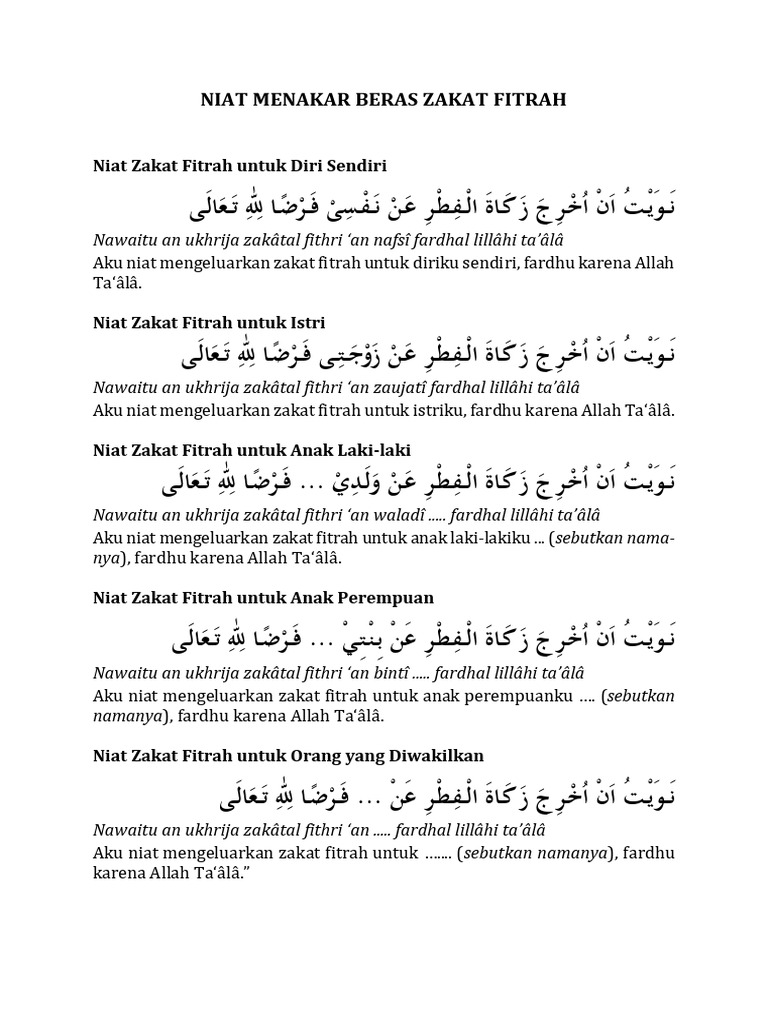 NIAT MENAKAR BERAS ZAKAT FITRAH
Niat Zakat Fitrah untuk Diri Sendiri
نَوَيْتُ اَنْ اُخْرِجَ زَكَاةَ الْفِطْرِ عَنْ نَفْسِىْ فَرْضًا لِلّٰهِ تَعَالَى
Nawaitu an ukhrija zakâtal fithri ‘an nafsî fardhal lillâhi ta’âlâ
Aku niat mengeluarkan zakat fitrah untuk diriku sendiri, fardhu karena Allah
Ta‘âlâ.
Niat Zakat Fitrah untuk Istri
نَوَيْتُ اَنْ اُخْرِجَ زَكَاةَ الْفِطْرِ عَنْ زَوْجَتِى فَرْضًا لِلّٰهِ تَعَالَى
Nawaitu an ukhrija zakâtal fithri ‘an zaujatî fardhal lillâhi ta’âlâ
Aku niat mengeluarkan zakat fitrah untuk istriku, fardhu karena Allah Ta‘âlâ.
Niat Zakat Fitrah untuk Anak Laki-laki
نَوَيْتُ اَنْ اُخْرِجَ زَكَاةَ الْفِطْرِ عَنْ وَلَدِيْ ... فَرْضًا لِلّٰهِ تَعَالَى
Nawaitu an ukhrija zakâtal fithri ‘an waladî ..... fardhal lillâhi ta’âlâ
Aku niat mengeluarkan zakat fitrah untuk anak laki-lakiku ... (sebutkan nama-
nya), fardhu karena Allah Ta‘âlâ.
Niat Zakat Fitrah untuk Anak Perempuan
نَوَيْتُ اَنْ اُخْرِجَ زَكَاةَ الْفِطْرِ عَنْ بِنْتِيْ ... فَرْضًا لِلّٰهِ تَعَالَى
Nawaitu an ukhrija zakâtal fithri ‘an bintî ..... fardhal lillâhi ta’âlâ
Aku niat mengeluarkan zakat fitrah untuk anak perempuanku .... (sebutkan
namanya), fardhu karena Allah Ta‘âlâ.
Niat Zakat Fitrah untuk Orang yang Diwakilkan
نَوَيْتُ اَنْ اُخْرِجَ زَكَاةَ الْفِطْرِ عَنْ ... فَرْضًا لِلّٰهِ تَعَالَى
Nawaitu an ukhrija zakâtal fithri ‘an ..... fardhal lillâhi ta’âlâ
Aku niat mengeluarkan zakat fitrah untuk ....... (sebutkan namanya), fardhu
karena Allah Ta‘âlâ.”